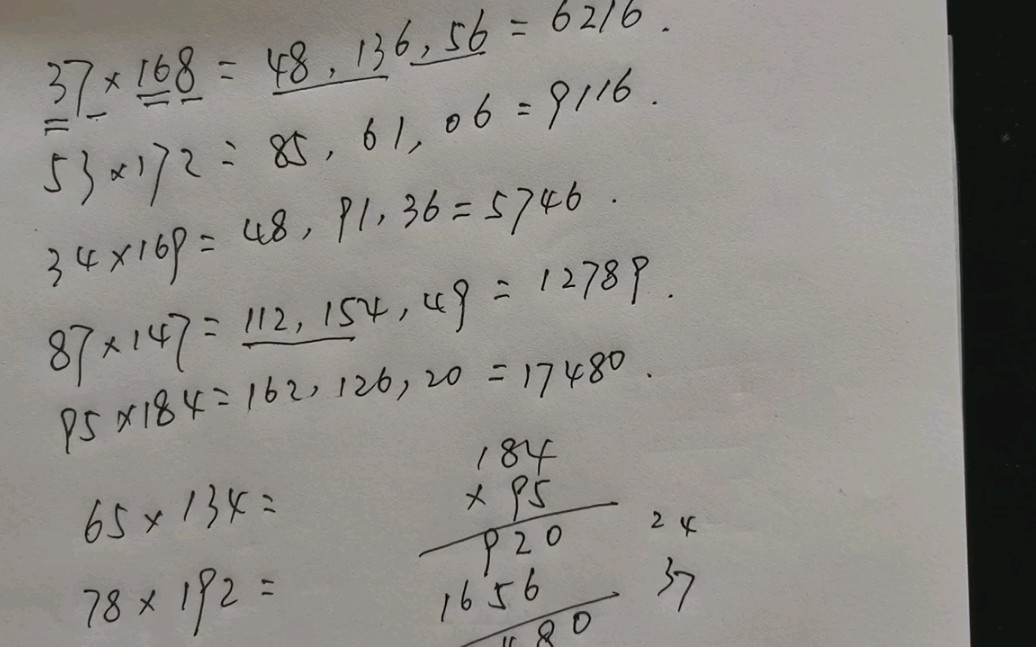 37×168=48,136,56=6216.
53×172=85,61,06=9116.
34×169=48,91,36=5746.
87×147=112,154,49=12789.
95×184=162,126,20=17480.
65×134=
184
×95
920
1656
480
24
37
78×192=